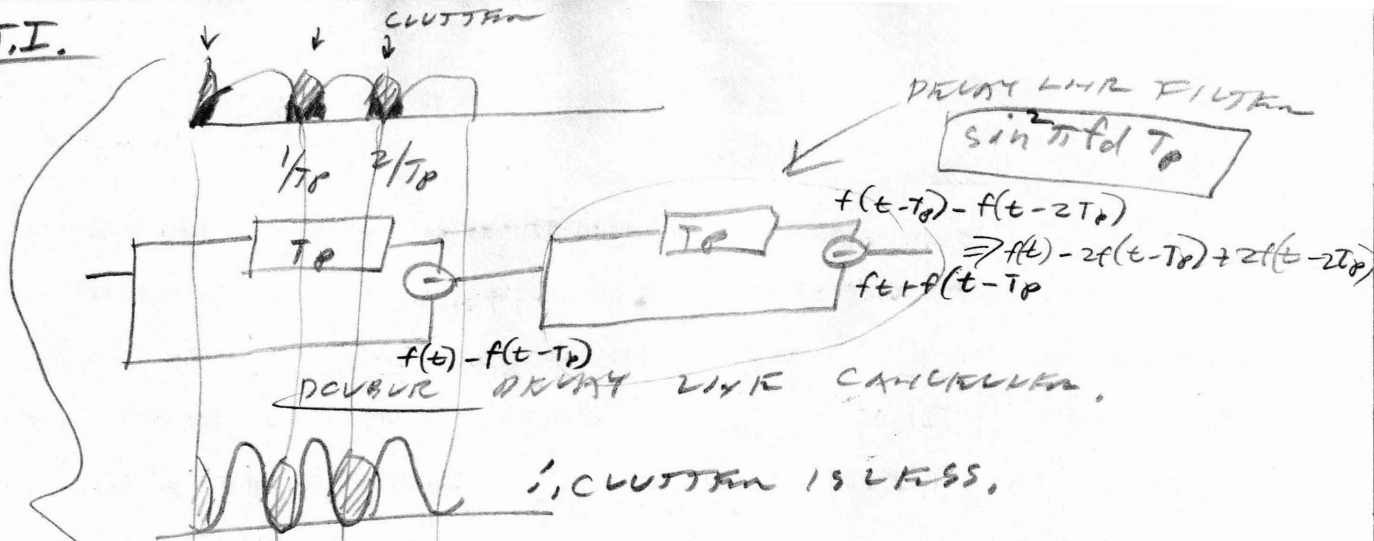 T.I.
CLUTTER
1/Tp 2/Tp
DELAY LINE FILTER
sin² π fd Tp
Tp
f(t) - f(t-Tp)
Tp
f(t-Tp) - f(t-2Tp)
⇒ f(t) - 2f(t-Tp) + 2f(t-2Tp)
ft + f(t-Tp
DOUBLE DELAY LINE CANCELLER.
∴ CLUTTER IS LESS.